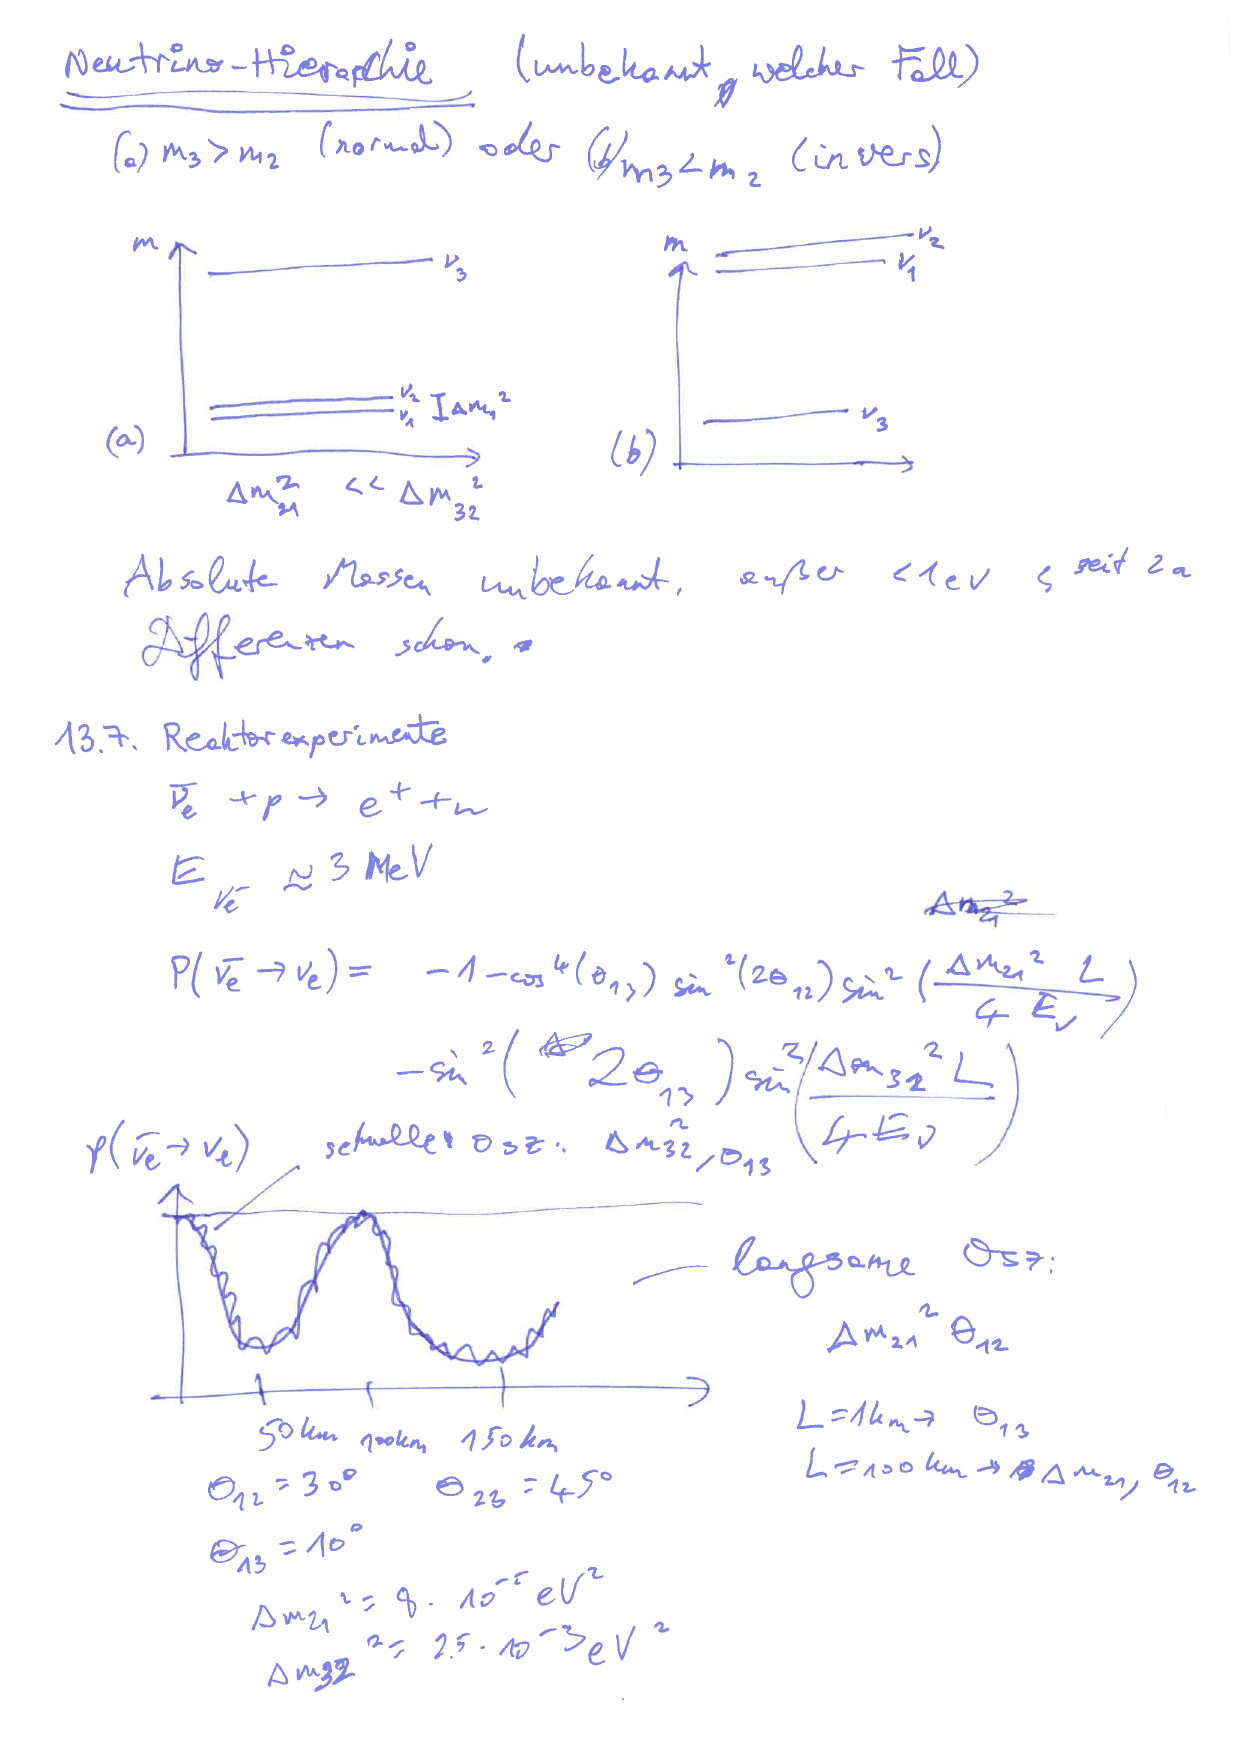 Neutrino-Hierarchie (unbekannt, welcher Fall)
(a) m₃ > m₂ (normal) oder (b) m₃ < m₂ (invers)
m ν₃
ν₂
ν₁ I Δm₂₁²
(a)
Δm₂₁² << Δm₃₂²
m ν₂
ν₁
ν₃
(b)
Absolute Massen unbekannt, außer < 1 eV seit 2a
Differenzen schon.
13.7. Reaktorexperimente
ν̄ₑ + p → e⁺ + n
E_ν̄ₑ ≈ 3 MeV
Δm₂₁²
P(ν̄ₑ → νₑ) = -1 - cos⁴(θ₁₃) sin²(2θ₁₂) sin²(Δm₂₁² L / 4 E_ν)
- sin²(2θ₁₃) sin²(Δm₃₂² L / 4 E_ν)
P(ν̄ₑ → νₑ) schnelle Osz.: Δm₃₂², θ₁₃
langsame Osz:
Δm₂₁² θ₁₂
50km 100km 150km
L = 1km → θ₁₃
L = 100km → Δm₂₁, θ₁₂
θ₁₂ = 30° θ₂₃ = 45°
θ₁₃ = 10°
Δm₂₁² = 8 · 10⁻⁵ eV²
Δm₃₂² = 2.5 · 10⁻³ eV²